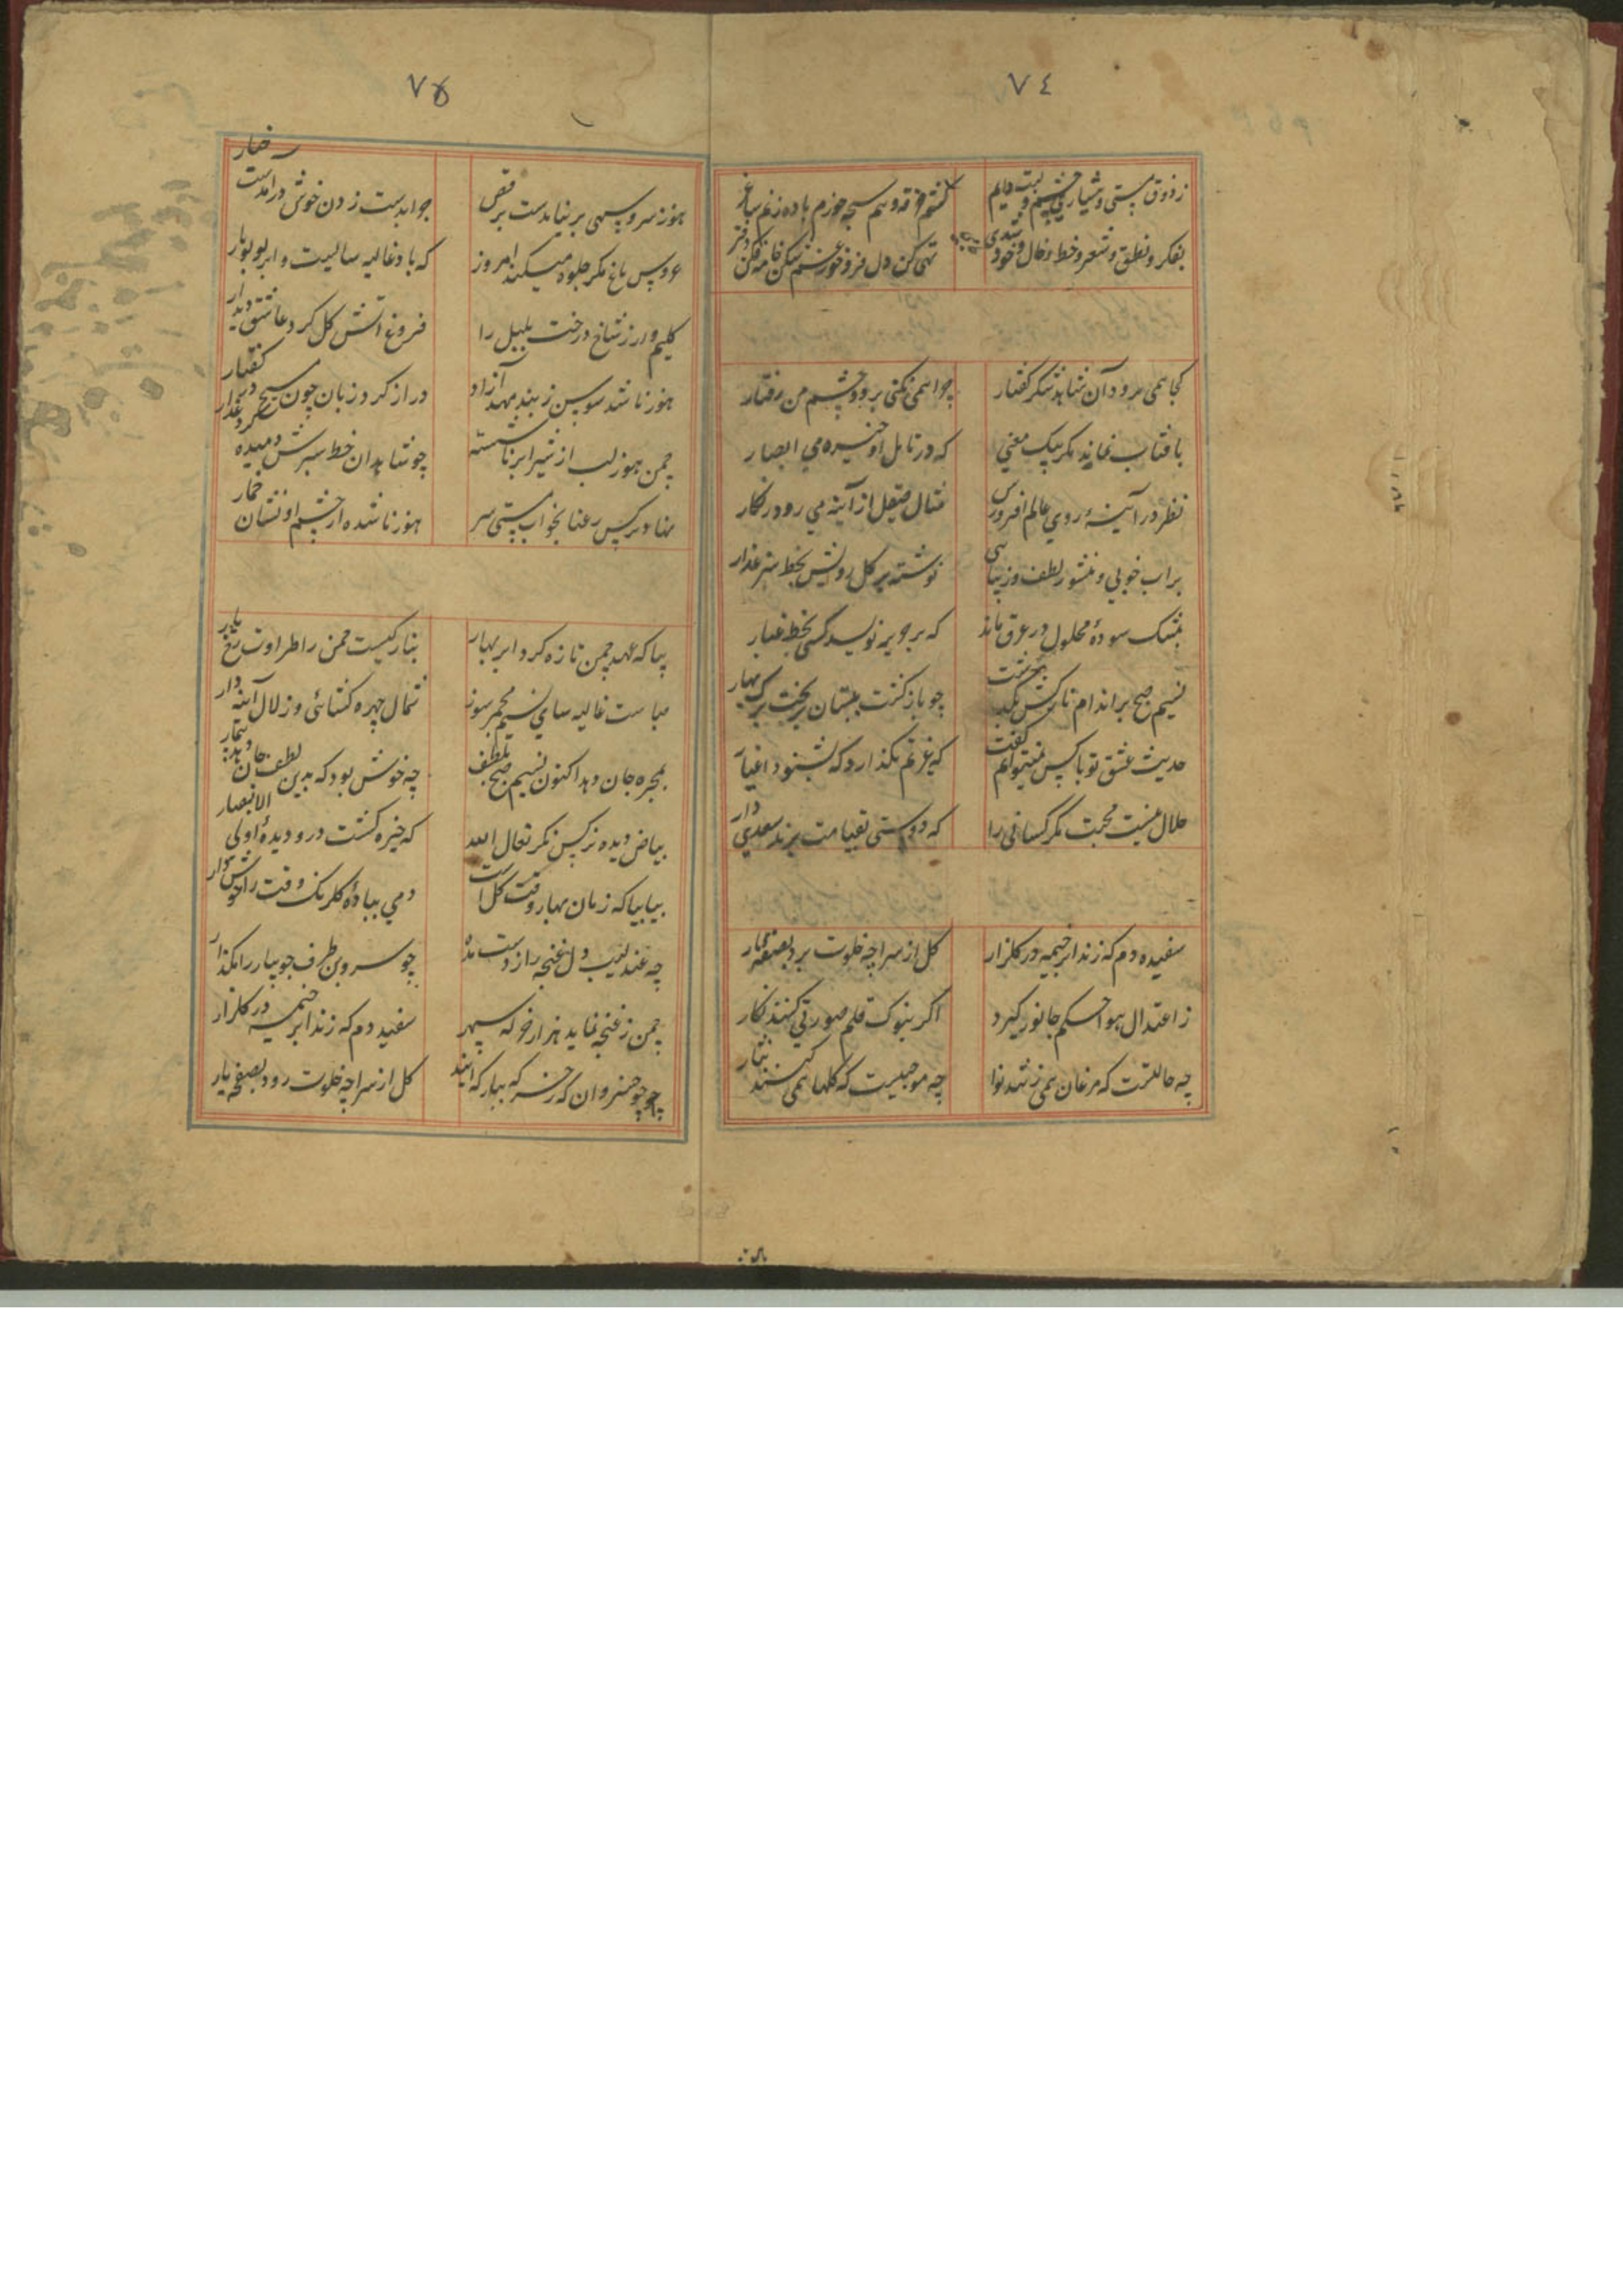 ٧٤
ز ذوق مستی و هشیاری چشم و لبت دایم
کشم خرقه و هم سبحه خورم باده زنم ساغر
بفکر و نطق و شعر و خط و خال و خود شدی
تهی کن دل فرو خور شکن خامه فکن دفتر
کجا همی رود آن شاهد شکر گفتار
چرا همی نکنی بر دو چشم من رفتار
بافتاب نماند مگر بیک معنی
که در تامل او خیره می ابصار
نظر در آینهٔ روی عالم افروزش
مثال صیقل از آینه می رود زنگار
برات خوبی و منشور لطف و زیبایی
نوشته بر گل رویش بخط سبز عذار
بمشک سودهٔ محلول در عرق ماند
که بر حریر نویسد کسی بخط غبار
نسیم صبح بر اندام نازکش بگذشت
چو باز گشت ببستان بریخت برگ بهار
حدیث عشق تو با کس نمیتوانم گفت
که غیرتم نگذارد که بشنود اغیار
حلال نیست محبت مگر کسانی را
که دوستی بقیامت برند سعدی وار
سفیده دم که زند ابر خیمه در گلزار
گل از سراچه خلوت برد بصفهٔ بار
ز اعتدال هوا حکم جانور گیرد
اگر بنوک قلم صورتی کنند نگار
چه حالتست که مرغان همی زنند نوا
چه موجبست که گلها همی کنند نثار
٧۵
هنوز سرو سهی بر نیامدست برقص
چرا بدست زدن خوش درآمدست چنار
عروس باغ مگر جلوه میکند امروز
که باد غالیه سائیست و ابر لولو بار
کلیم وار ز شاخ درخت بلبل را
فروغ آتش گل کرد عاشق دیدار
هنوز ناشده سوسن ز بند مهد آزاد
دراز کرد زبان چون مسیح در گفتار
چمن هنوز لب از شیر ابر ناشسته
چو شاهدان خط سبزش دمیده گرد عذار
نهاد نرگس رعنا بخواب مستی سر
هنوز ناشده از چشم او نشان خمار
بیا که عهد چمن تازه کرد ابر بهار
بتازگیست چمن را طراوت رخ یار
صباست غالیه سای و نسیم مجمر سوز
شمال چهره گشائی و زلال آینه دار
بمجره جان دهد اکنون نسیم صبح بلطف
چه خوش بود که بدین لطف جان دهد بیمار
بیاض دیده نرگس نگر تعال الله
که خیره گشت درو دیدهٔ اولی الابصار
بیا بیا که زمان بهار و وقت گل است
دمی ببادهٔ گلرنگ وقت را خوش دار
چه عندلیب دل غنچه را ز دست مده
چو سرو بن طرف جویبار را مگذار
چمن ز غنجه نماید هزار خرگه سپهر
سفیده دم که زند ابر خیمه در گلزار
گل از سراچه خلوت رود بصفهٔ یار